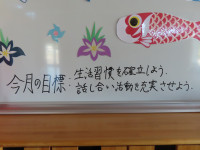 今月の目標:生活習慣を確立しよう。
話し合い活動を充実させよう。